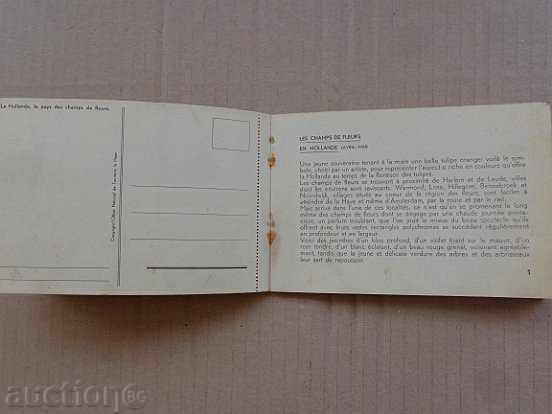 La Hollande, le pays des champs de fleurs.
Copyright Office National de Tourisme, la Haye
LES CHAMPS DE FLEURS
EN HOLLANDE
Une jeune souveraine tenant à la main une belle tulipe orange: voilà le sym-
bole, choisi par un artiste, pour représenter l'aspect si riche en couleurs qu'offre
la Hollande au temps de la floraison des tulipes.
Les champs de fleurs se trouvent à proximité de Harlem et de Leyde, villes
dont les environs sont ravissants. Warmond, Lisse, Hillegom, Bennebroek et
Noordwijk, villages situés au coeur de la région des fleurs, sont faciles à
atteindre de la Haye et même d'Amsterdam, par la route et par le rail.
Mais arrivé dans l'une de ces localités, ce n'est qu'en se promenant le long
même des champs de fleurs dont se dégage par une chaude journée printa-
nière, un parfum troublant, que l'on jouit le mieux du beau spectacle qu'ils
offrent avec leurs vastes rectangles polychromes se succédant régulièrement
en profondeur et en largeur.
Voici des jacinthes d'un bleu profond, d'un violet tirant sur le mauve, d'un
rose tendre, d'un blanc éclatant, d'un beau rouge grenat, voisinant agréable-
ment, tandis que la jeune et délicate verdure des arbres et des arbrisseaux
leur sert de repoussoir.
1
auctionBG